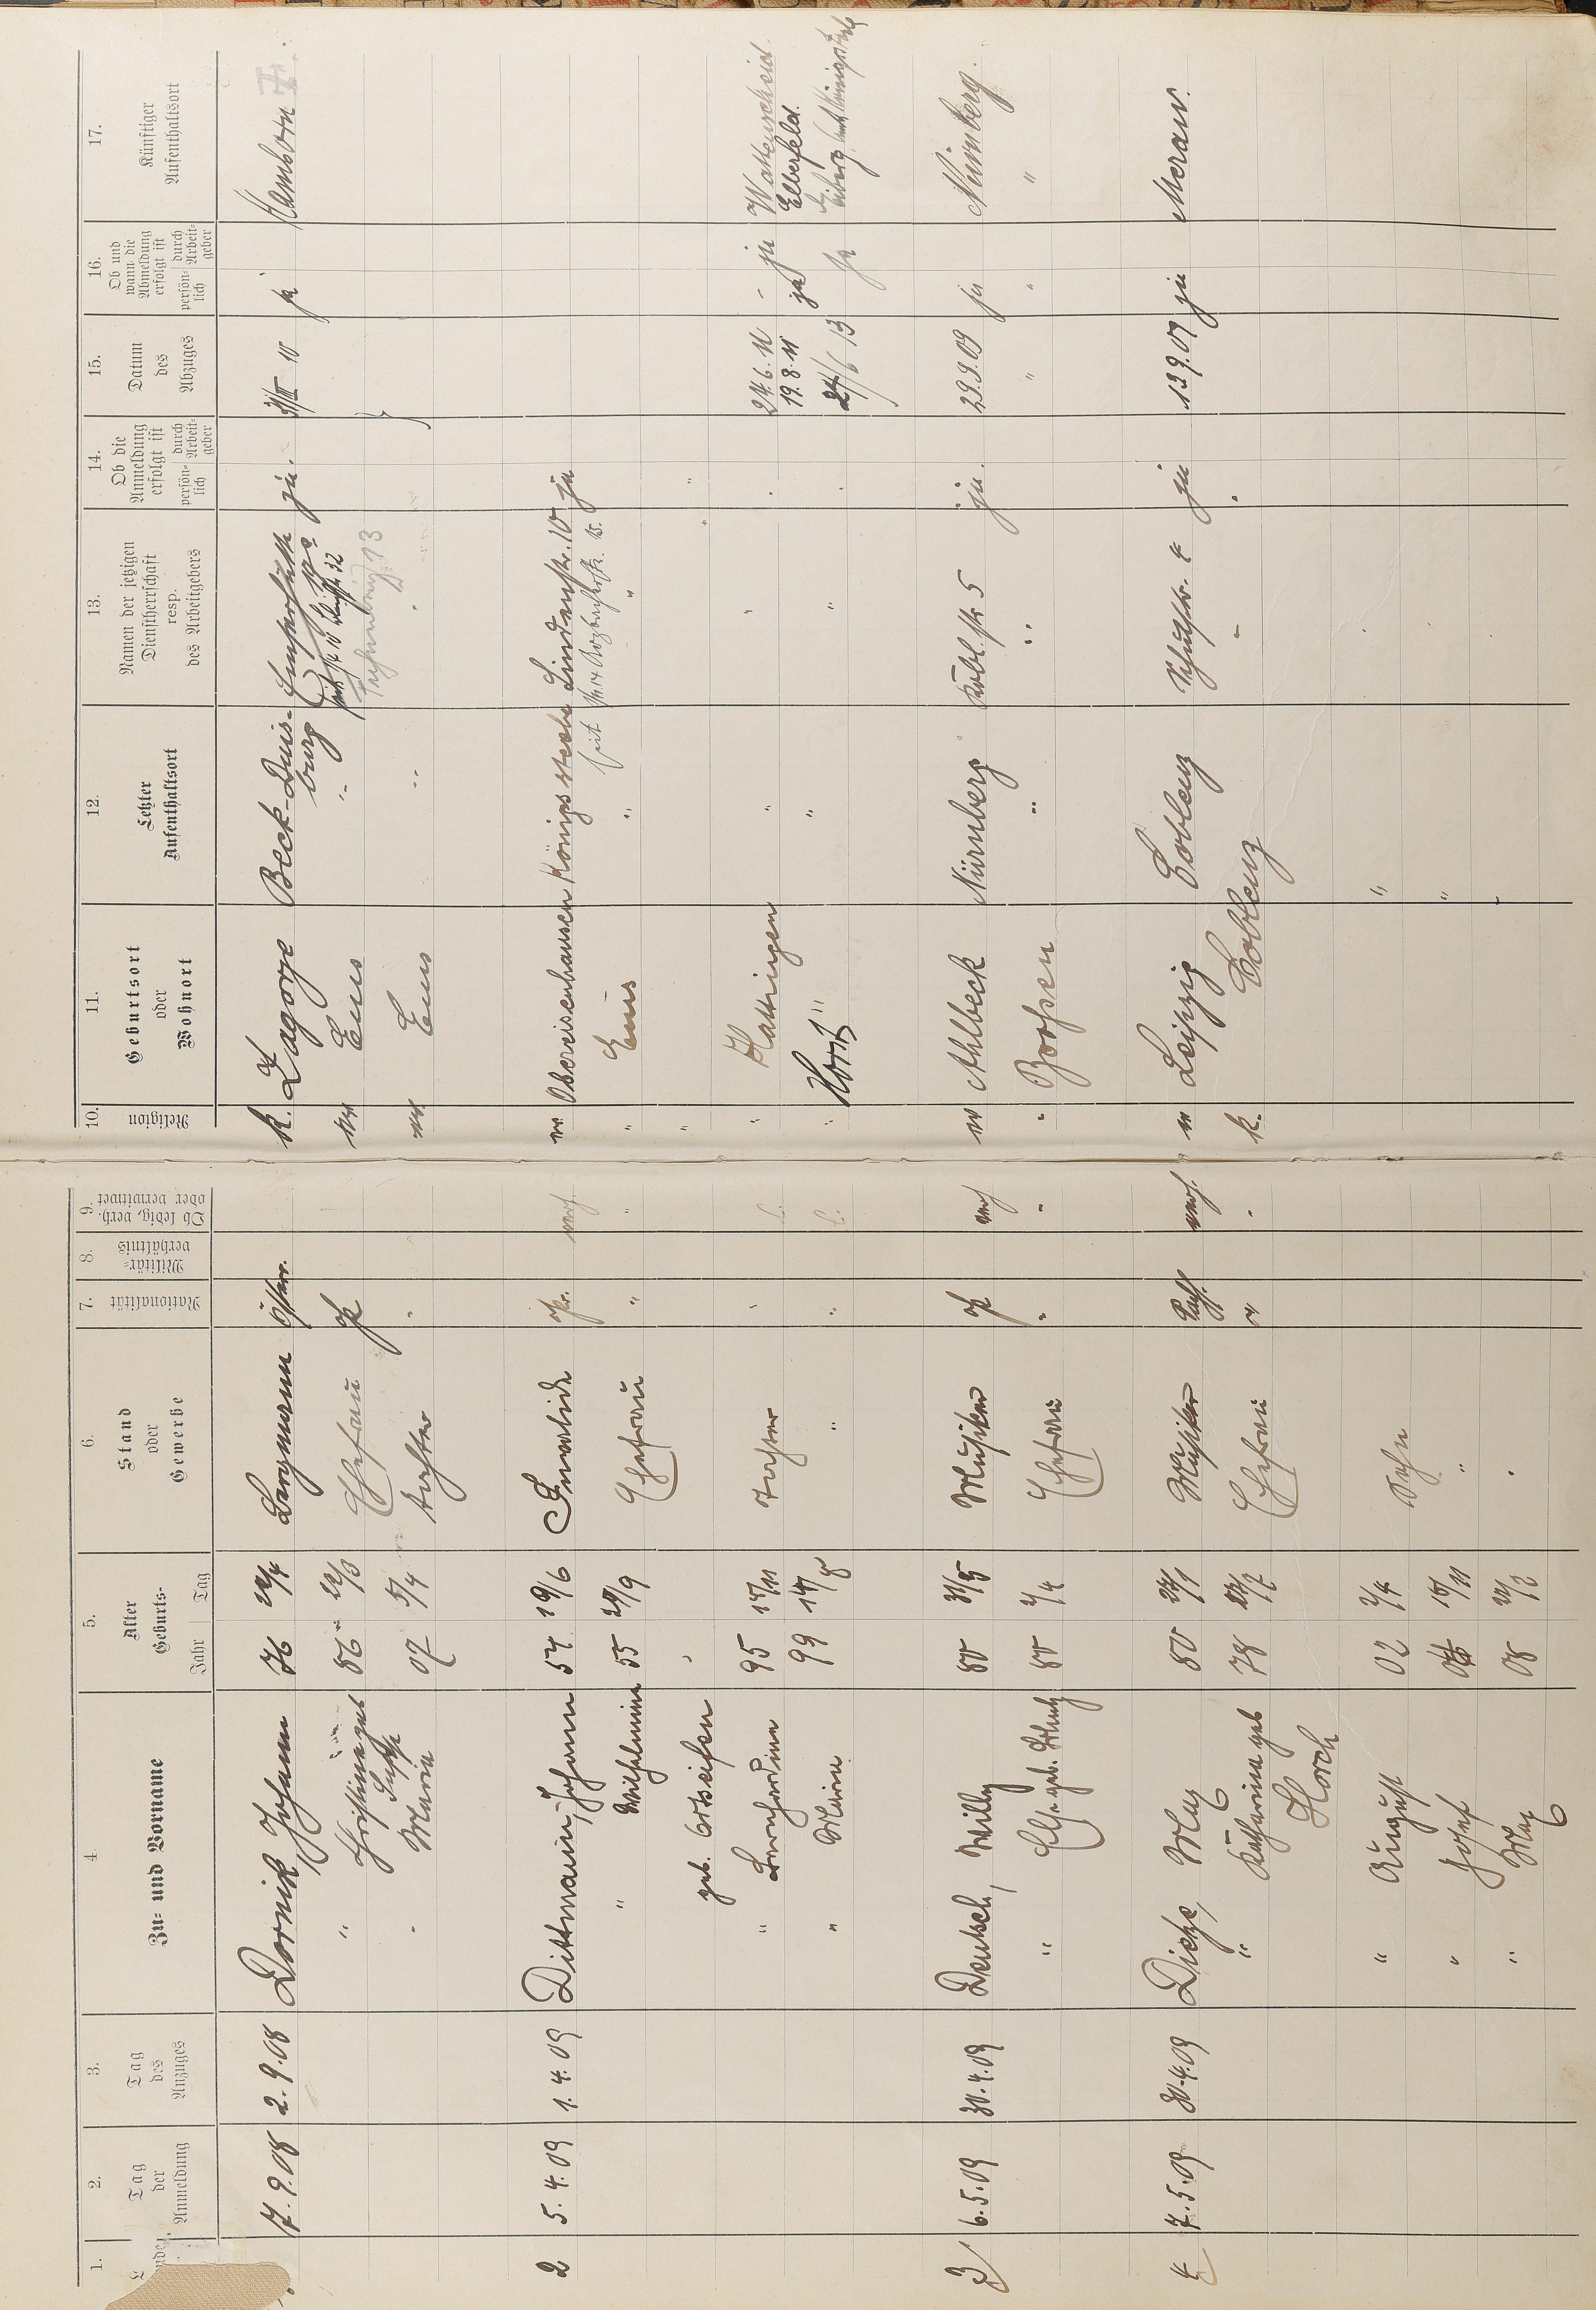 1.
2. Tag der Anmeldung
3. Tag des Anzuges
4. Zu- und Vorname
5. Alter Geburts- Jahr Tag
6. Stand oder Gewerbe
7. Nationalität
8. Militär-verhältnis
9. Ob ledig, verh. oder verwitwet
10. Religion
11. Geburtsort oder Wohnort
12. Letzter Aufenthaltsort
13. Namen der jetzigen Dienstherrschaft resp. des Arbeitgebers
14. Ob die Anmeldung erfolgt ist persön-lich durch Arbeit-geber
15. Datum des Abzuges
16. Ob und wann die Abmeldung erfolgt ist persön-lich durch Arbeit-geber
17. Künftiger Aufenthaltsort
17.9.08 2.9.08 Dornik, Johann 76 Bergmann Österr. k. Zagorze Beck-Duis-burg ja. ja Hamborn
" Christine geb. 86 Ehefrau Ems "
" Maria 07 5/4 Tochter " Ems "
2 5.4.09 1.4.09 Dittmann, Johann 54 19/6 Invalide verh. Obereisenhausen Königssteele Lindenstr. 10 ja
" Wilhelmine 55 29/9 Ehefrau " " " Ems " "
geb. Ortseifen "
" Bernhardine 95 15/11 Tochter " l. " Hattingen " " 24.6.11 ja Wattenscheid
19.8.11 ja Elberfeld
" Marie 99 14/8 " " l. " Horst " " " 24/6 13 ja
3 6.5.09 30.4.09 Deutsch, Willy 80 31/5 Musiker verh Ahlbeck Nürnberg 5 ja. 29.9.09 ja Nürnberg.
" Else geb. 80 2/4 Ehefrau " " " " " " " "
4 7.5.09 30.4.09 Dietze, Max 80 Musiker verh. Leipzig Coblenz Schulstr. 4 ja 13.9.09 ja Meran.
" Katharina geb 78 Ehefrau " " k. Coblenz
Horch
" August 02 2/4 Sohn "
" Josef 15/11 " "
" Max 08 "